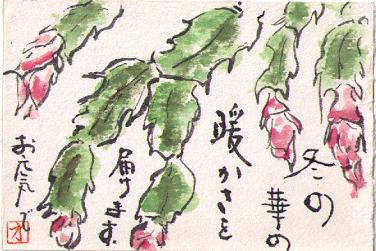 冬の
華の
暖かさを
届けます
お元気で